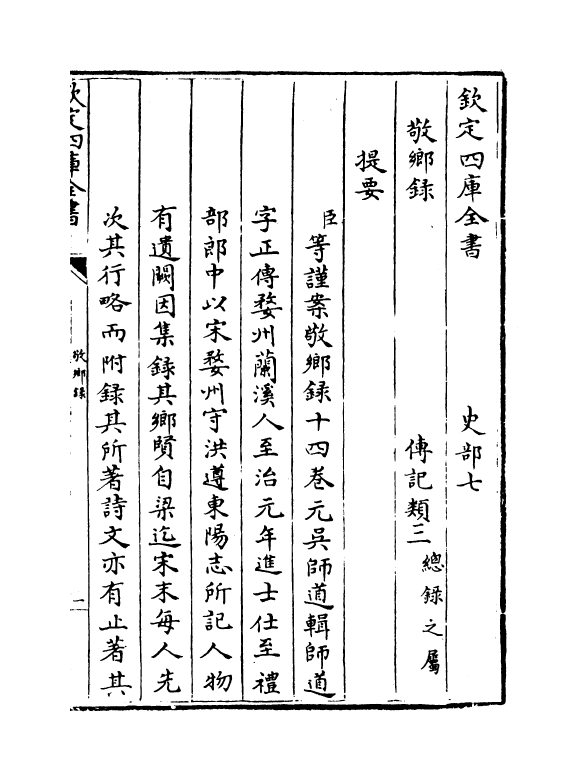 欽定四庫全書　史部七
敬鄉録　傳記類三總録之屬
提要
臣等謹案敬鄉録十四卷元吳師道輯師道
字正傳婺州蘭溪人至治元年進士仕至禮
部郎中以宋婺州守洪遵東陽志所記人物
有遺闕因集録其鄉賢自梁迄宋末每人先
次其行略而附録其所著詩文亦有止著其
欽定四庫全書
敬鄉録
一